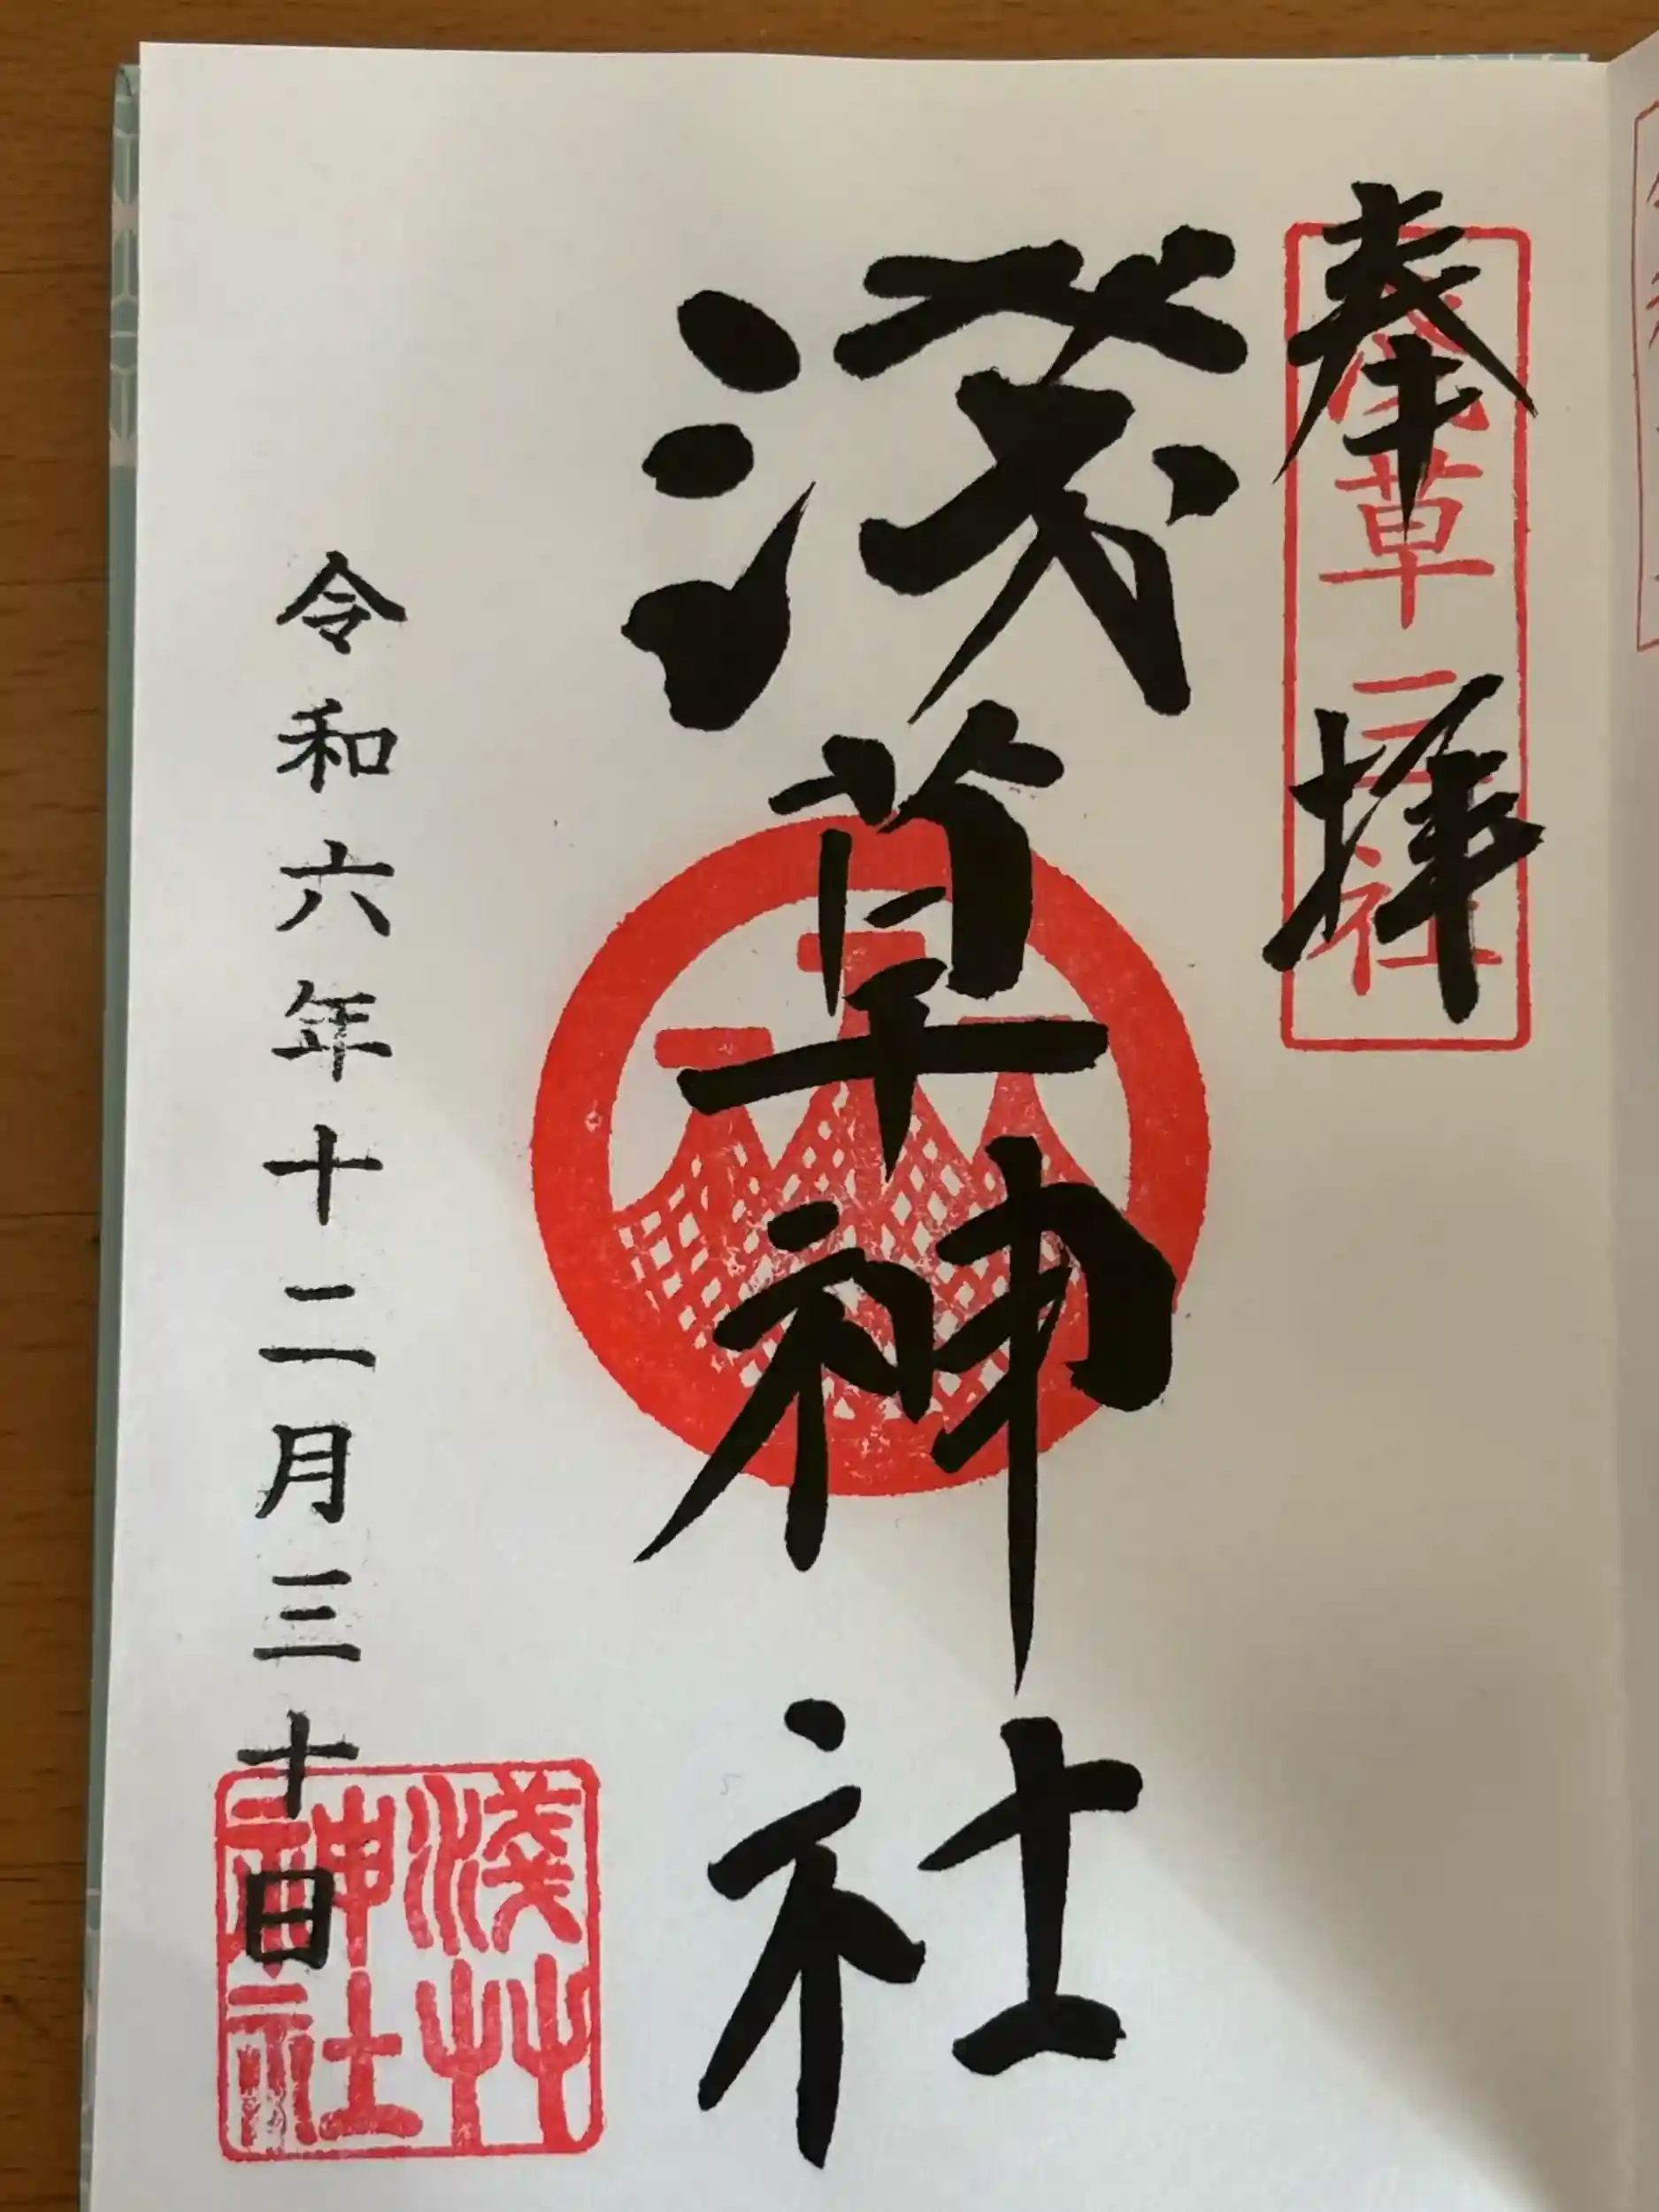 奉拝
浅草三社
淺草神社
令和六年十二月三十日
淺艸神社